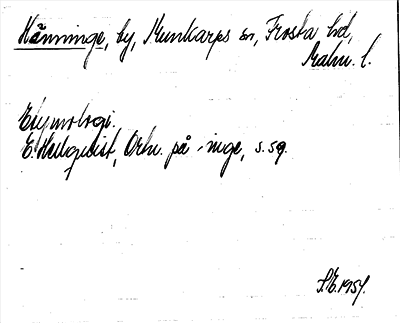 Hänninge, by, Munkarps sn, Frosta hd,
Malm. l.
Etymologi.
E. Hellquist, Ortn. på -inge, s. 59.
S.E. 1954.